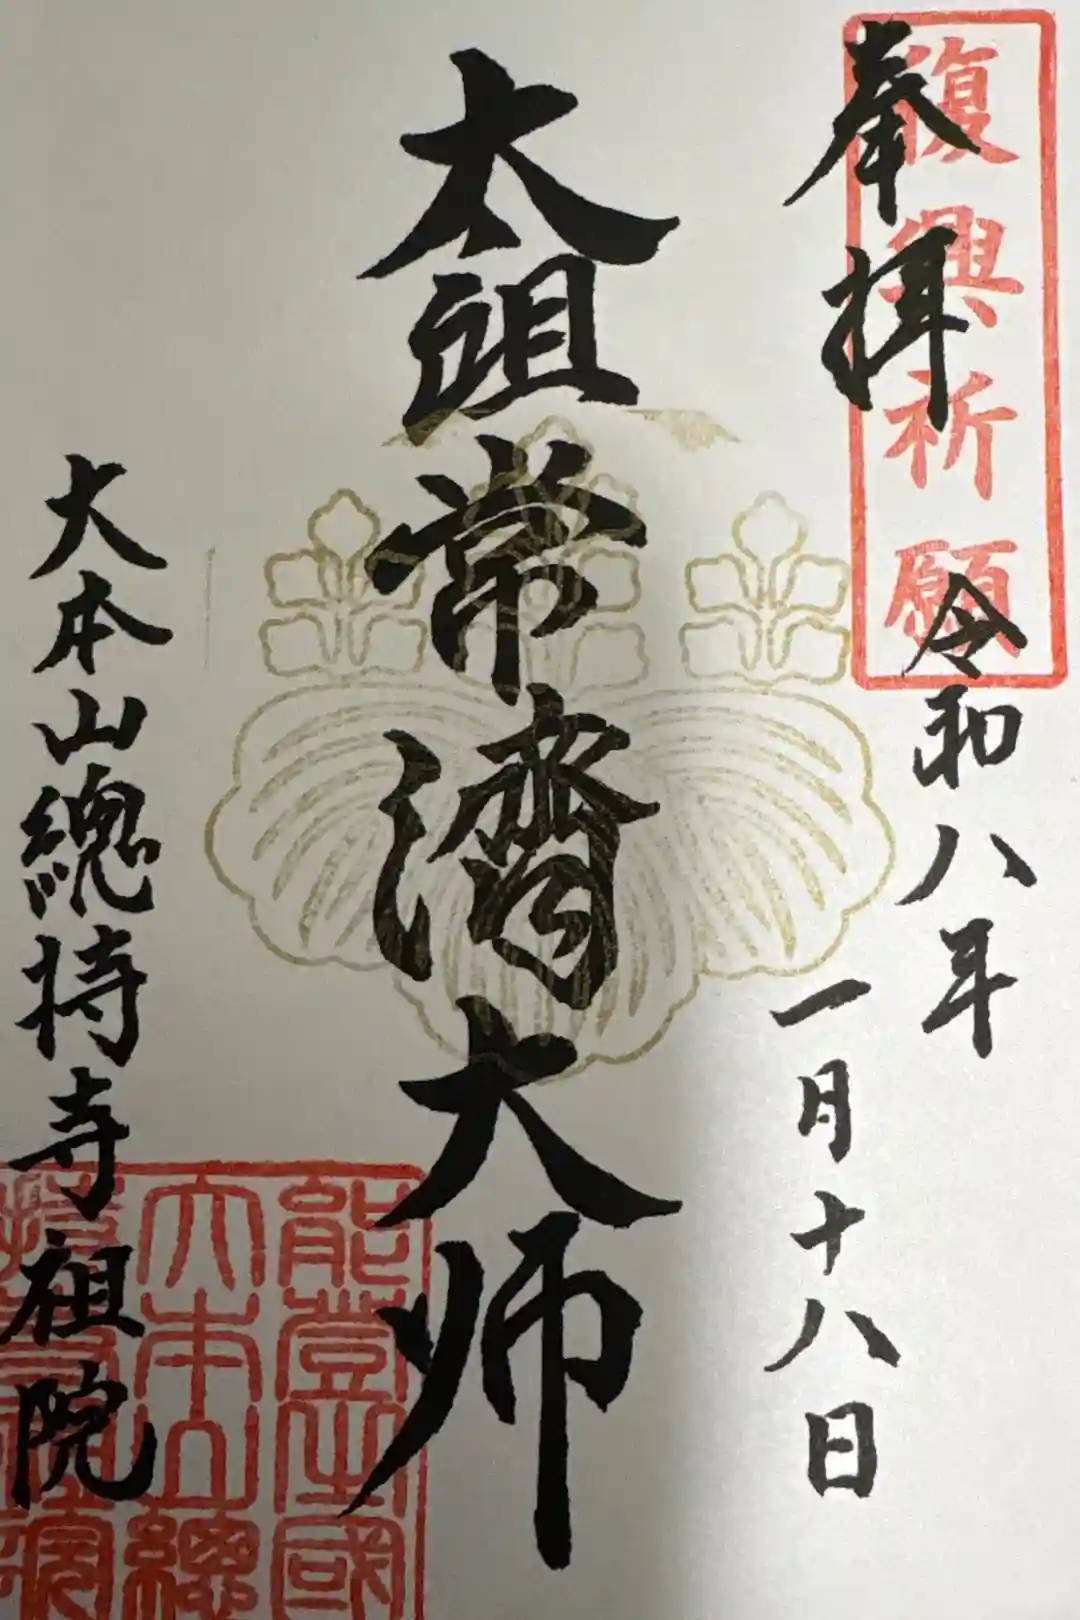 復興祈願
奉拝
令和八年
一月十八日
太祖常濟大师
大本山總持寺祖院
能登國
大本山總